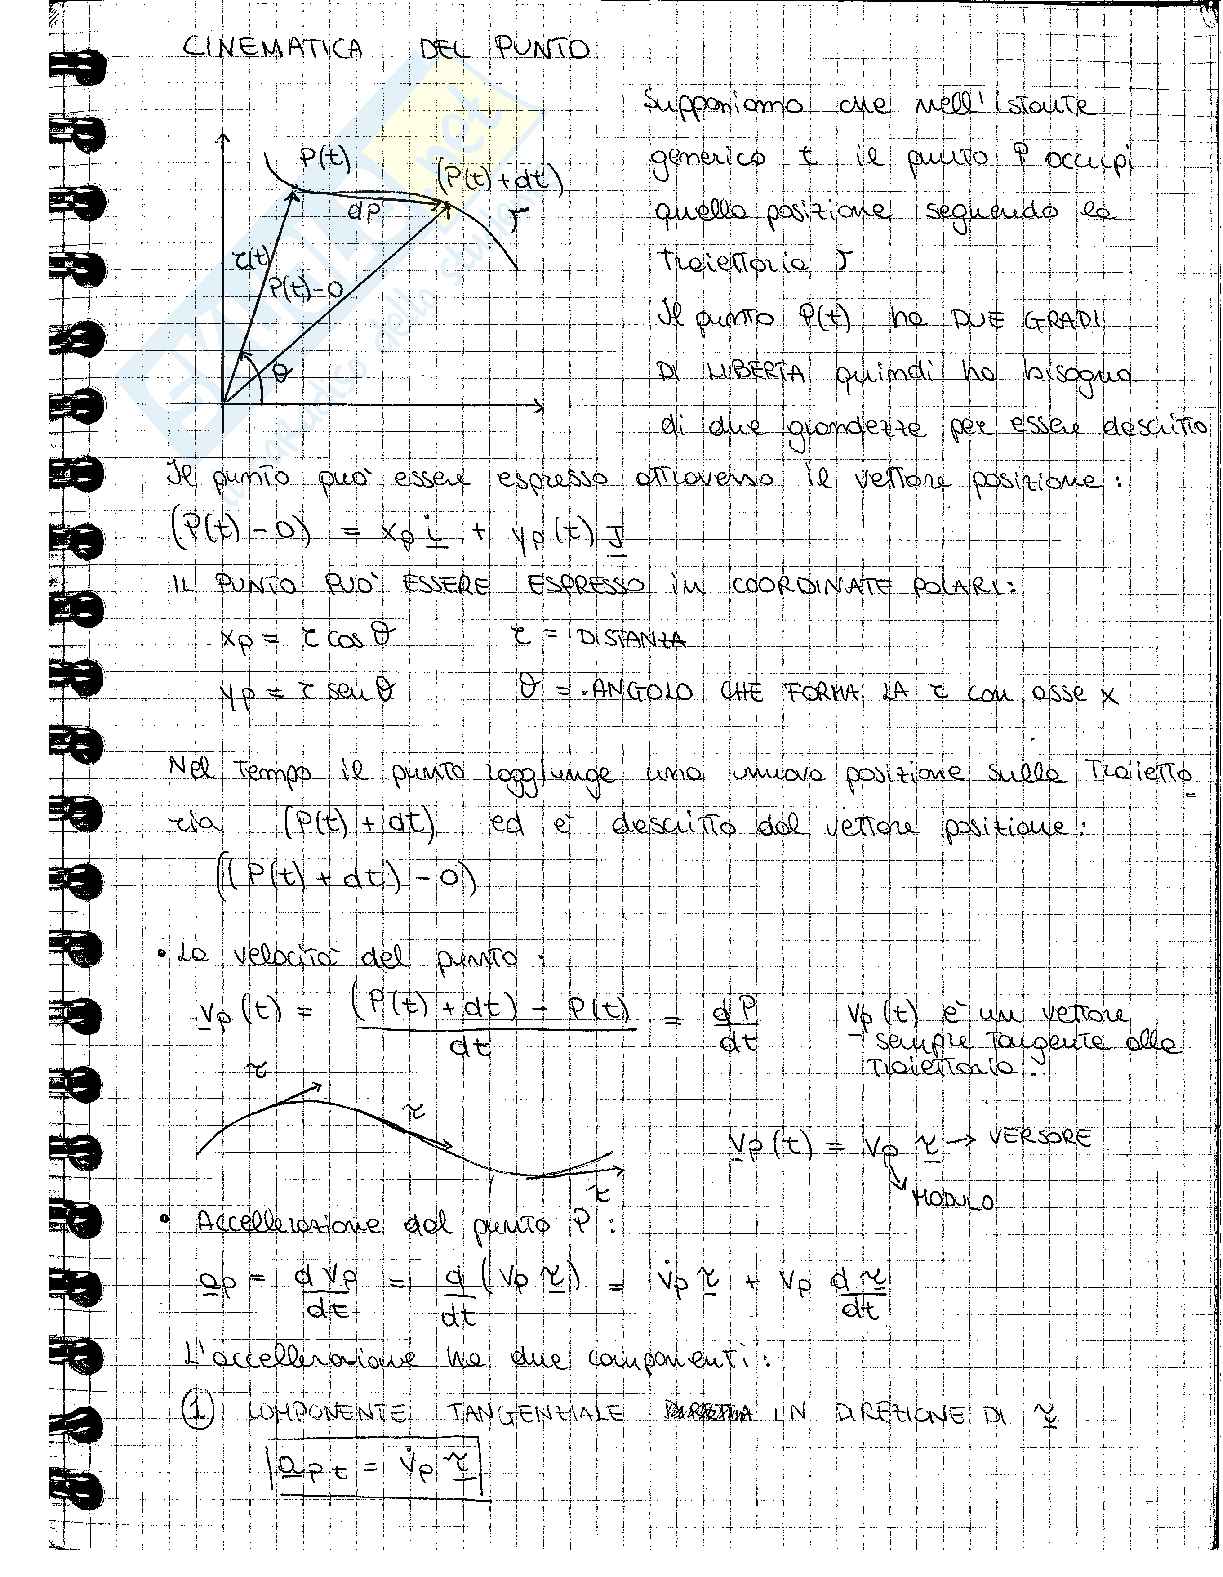 CINEMATICA DEL PUNTO
Supponiamo che nell'istante
generico t il punto P occupi
quella posizione seguendo la
traiettoria γ
Il punto P(t) ha DUE GRADI
DI LIBERTA quindi ha bisogno
di due grandezze per essere descritto
P(t)
(P(t)+dt)
dP
γ
r(t)
P(t)-O
θ
Il punto può essere espresso attraverso il vettore posizione:
(P(t)-O) = xp i + yp(t) J
IL PUNTO PUO' ESSERE ESPRESSO in COORDINATE POLARI:
xp = r cos θ r = DISTANZA
yp = r sen θ θ = ANGOLO CHE FORMA LA r con asse x
Nel tempo il punto raggiunge una nuova posizione sulla traietto
ria (P(t)+dt) ed e' descritto dal vettore posizione:
((P(t)+dt)-O)
• La velocità del punto:
vp(t) = (P(t)+dt) - P(t) / dt = dP / dt vp(t) e' un vettore
sempre tangente alla
traiettoria.
τ
τ
τ
vp(t) = vp τ → VERSORE
MODULO
• Accellerazione dal punto P:
ap = d vp / dt = d / dt (vp τ) = v̇p τ + vp d τ / dt
L'accellerazione ha due componenti:
① COMPONENTE TANGENZIALE IN DIREZIONE DI τ
apt = v̇p τ